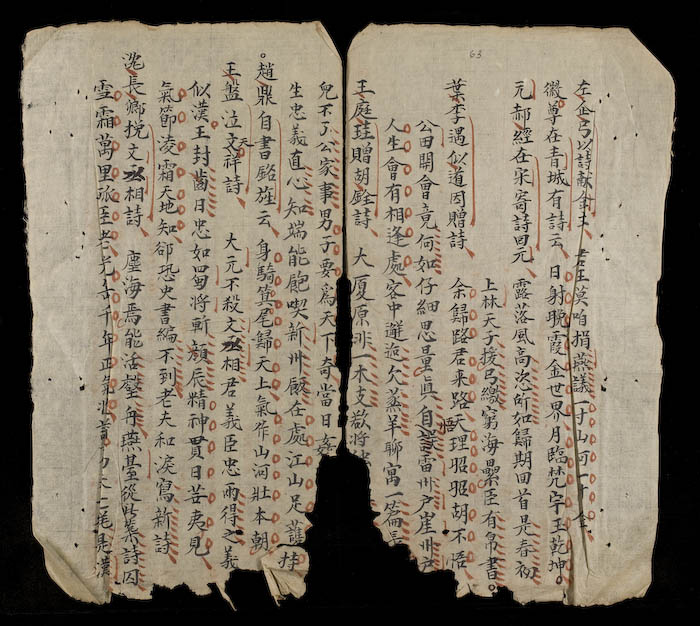 63
左企弓以詩献金主 君王莫咱捐燕議一寸山河一寸金
徽尊在青城有詩云 日射晚霞金世界月臨梵宇玉乾坤。
元郝經在宋寄詩囬元 露落風高次所如歸期囬首是春初
上林天子援弓繳窮海纍臣有帛書。
葉李遇似道因贈詩 余歸路君来路天理昭昭胡不悟
公田関會竟何如仔細思量真自悞雷州戸崖州戸
人生會有相逢處客中邂逅欠蒸羊聊寓一篇長
王庭珪贈胡銓詩 大厦原非一木支欲將
兒不了公家事男子要爲天下奇當日姦
生忠義直心知端能飽喫新州飯在處江山足護持
。趙鼎自書銘旌云 身騎箕尾歸天上氣作山河壯本朝
王盤泣文天祥詩 大元不殺文丞相君義臣忠兩得之義
似漢王封齒日忠如蜀將斬顔辰精神貫日苦夷見
氣節凌霜天地知却恐史書編不到老夫和淚寫新詩
長卿挽文丞相詩 塵海焉能活壑舟燕臺從此築詩囚
雪霜萬里孤臣老光岳千年正氣